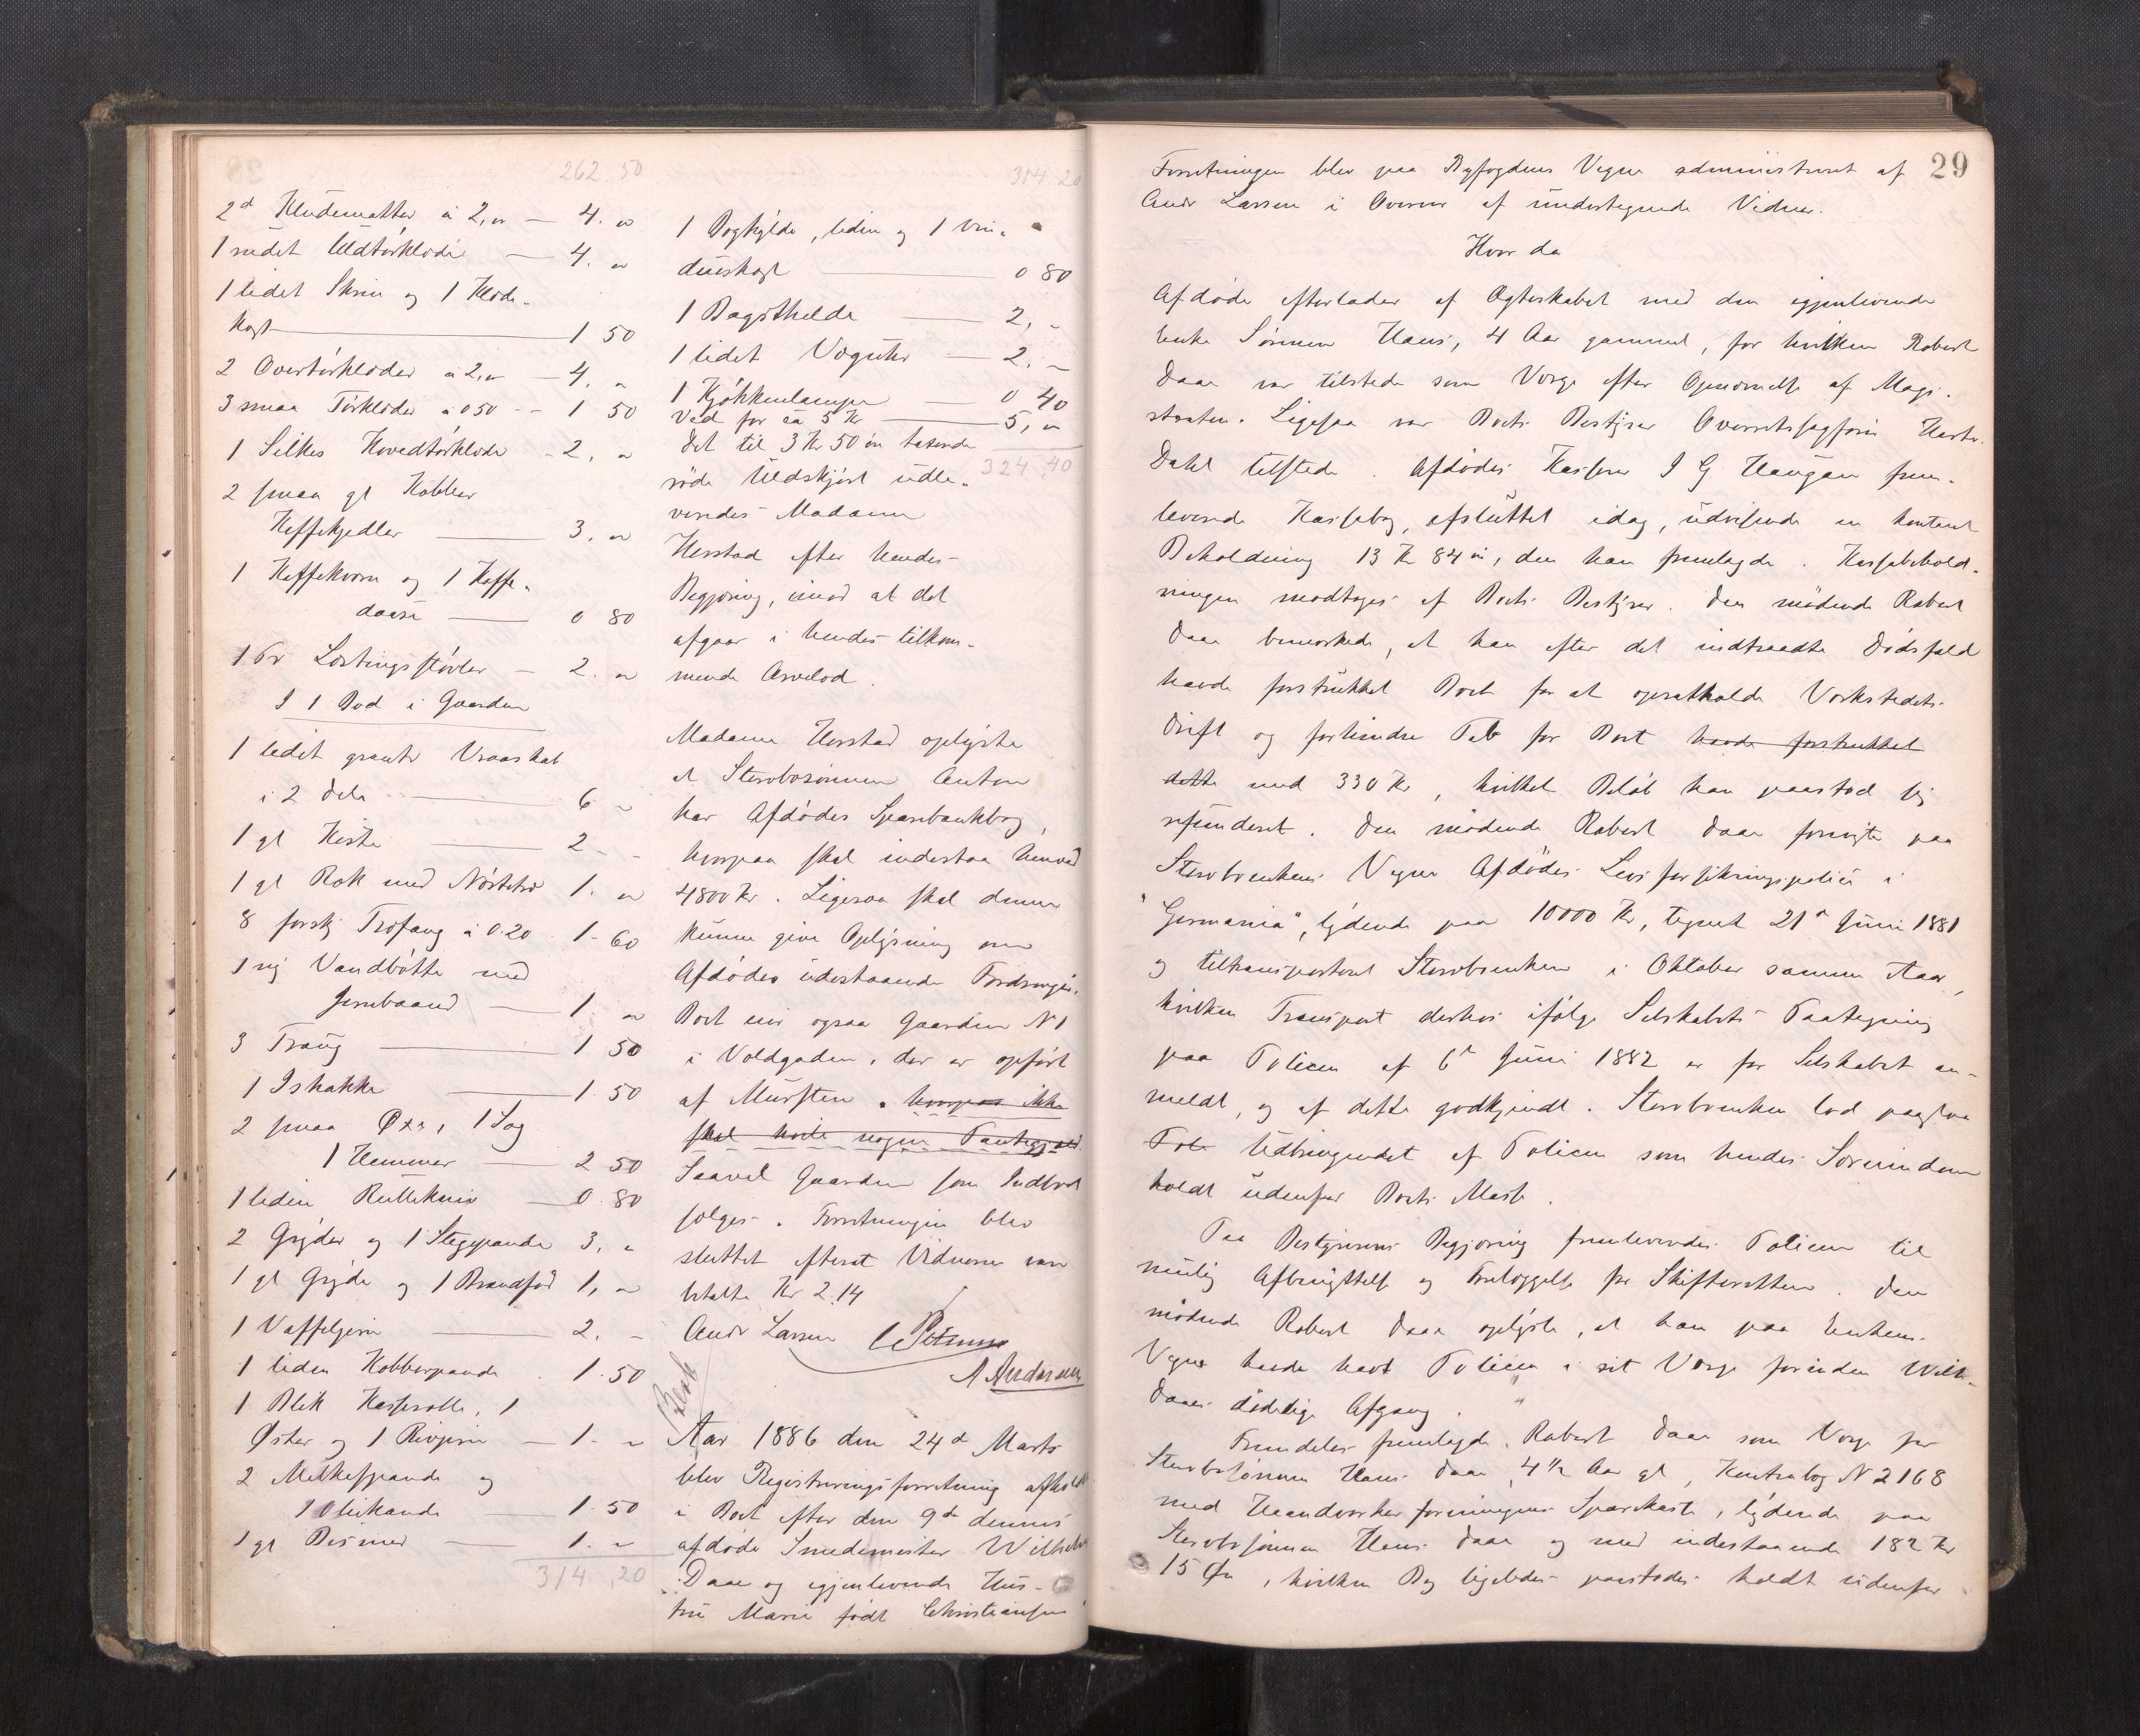 262.50
2d Kludematter à 2,00 — 4. 00
1 rudet Uldtørklæde — 4. 00
1 lidet Skrin og 1 Klæde-
kost — 1 50
2 Overtørklæder à 2,00 — 4. 00
3 smaa Tørklæder à 0 50 — 1 50
1 Silkes Hovedtørklæde — 2, 00
2 smaa gl Kobber
Kaffekjedler — 3. 00
1 Kaffekværn og 1 Kaffe-
daase — 0 80
1 Pr Lastingsstøvler — 2. 00
I 1 Bod i Gaarden
1 lidet graat Vraaskab
i 2 dele — 6 "
1 gl Kiste — 2 - -
1 gl Rok med Nøstetræ 1. 00
8 forskj Træfang à 0.20 1-60
1 ny Vandbøtte med
Jernbaand — 1 00
3 Traug — 1 50
1 Ishakke — 1.50
2 smaa Øxe, 1 Sag
1 Hammer — 2 50
1 liden Rullekniv — 0.80
2 Gryder og 1 Stegepande 3, "
1 gl Gryde og 1 Brandfod 1, "
1 Vaffeljern — 2. "
1 liden Kobberpande . 1.50
1 Blik Kasserolle, 1
Øsker og 1 Rivjern — 1. "
2 Melkespande og
1 Oliekande — 1.50
1 gl Bismer — 1. "
314,20
314.20
1 Boghylde, liden og 1 Vin-
dueskost — 0 80
1 Bogsthelde — 2, "
1 lidet Væguhr — 2. "
1 Kjøkkenlampe — 0 40
Ved for ca 5 Kr — 5, 00
324.40
Det til 3 Kr 50 øre taxerede
røde Uldskjørt udle-
veredes Madame
Herstad efter hendes
Begjæring, imod at det
afgaar i hendes tilkom-
mende Arvelod.
Madame Herstad oplyste
at Stervbosønnen Anton
har Afdødes Sparebankbog,
hvorpaa skal indestaa henved
4800 Kr. Ligesaa skal denne
kunne give Oplysning om
Afdødes udestaaende Fordringer.
Boet eier ogsaa Gaarden N 1
i Voldgaden, der er opført
af Mursten. hvorpaa ikke
skal hvile nogen Pantegjæld.
Saavel Gaarden som Indboet
sælges. Forretningen blev
sluttet efterat Vidnerne vare
betalte Kr 2.14
Andr Larsen C Petersen
A Andersen
Aar 1886 den 24de Marts
blev Registreringsforretning afholdt
i Boet efter den 9de dennes
afdøde Smedemester Wilhelm
Daae og igjenlevende Hus-
tru Marie født Christiansen
29
Forretningen blev paa Byfogdens Vegne administreret af
Andr Larsen i Overvær af undertegnede Vidner.
Hvor da
Afdøde efterlader af Ægteskabet med den igjenlevende
Enke Sønnen Hans, 4 Aar gammel, for hvilken Robert
Daae var tilstede som Værge efter Opnævnelse af Magi-
straten. Ligesaa var Boets Bestyrer Overretssagfører Hartv.
Dahl tilstede. Afdødes Kasserer I G Haugan frem-
leverede Kassebog, afsluttet idag, udvisende en kontant
Beholdning 13 Kr 84 øre, den han fremlagde. Kassebehold-
ningen modtoges af Boets Bestyrer. Den mødende Robert
Daae bemærkede, at han efter det indtraadte Dødsfald
havde forstrukket Boet for at opretholde Værkstedets
Drift og forhindre Tab for Boet havde forstrukket
dette med 330 Kr, hvilket Beløb han paastod sig
refunderet. Den mødende Robert Daae foreviste paa
Stervboenkens Vegne Afdødes Livsforsikringspolice i
"Germania", lydende paa 10000 Kr, tegnet 21de Juni 1881
og tiltransporteret Stervboenken i Oktober samme Aar,
hvilken Transport derhos ifølge Selskabets Paategning
paa Policen af 6te Juni 1882 er for Selskabet an-
meldt, og af dette godkjendt. Stervboenken lod paastaa
Pole Udbringendet af Policen som hendes Særeiendom
holdt udenfor Boets Masse.
Paa Bestyrerens Begjæring fremleveredes Policen til
mulig Afbenyttelse og Fremlæggelse for Skifteretten. Den
mødende Robert Daae oplyste, at han paa Enkens
Vegne havde havt Policen i sit Værge forinden Wilh.
Daaes dødelige Afgang.
Fremdeles fremlagde Robert Daae som Værge for
Stervbosønnen Hans Daae, 4 1/2 Aar gl, Kontrabog N 2168
med Haandværkerforeningens Sparekasse, lydende paa
Stervbosønnen Hans Daae og med indestaaende 182 Kr
15 Øre, hvilken Bog ligeledes paastodes holdt udenfor